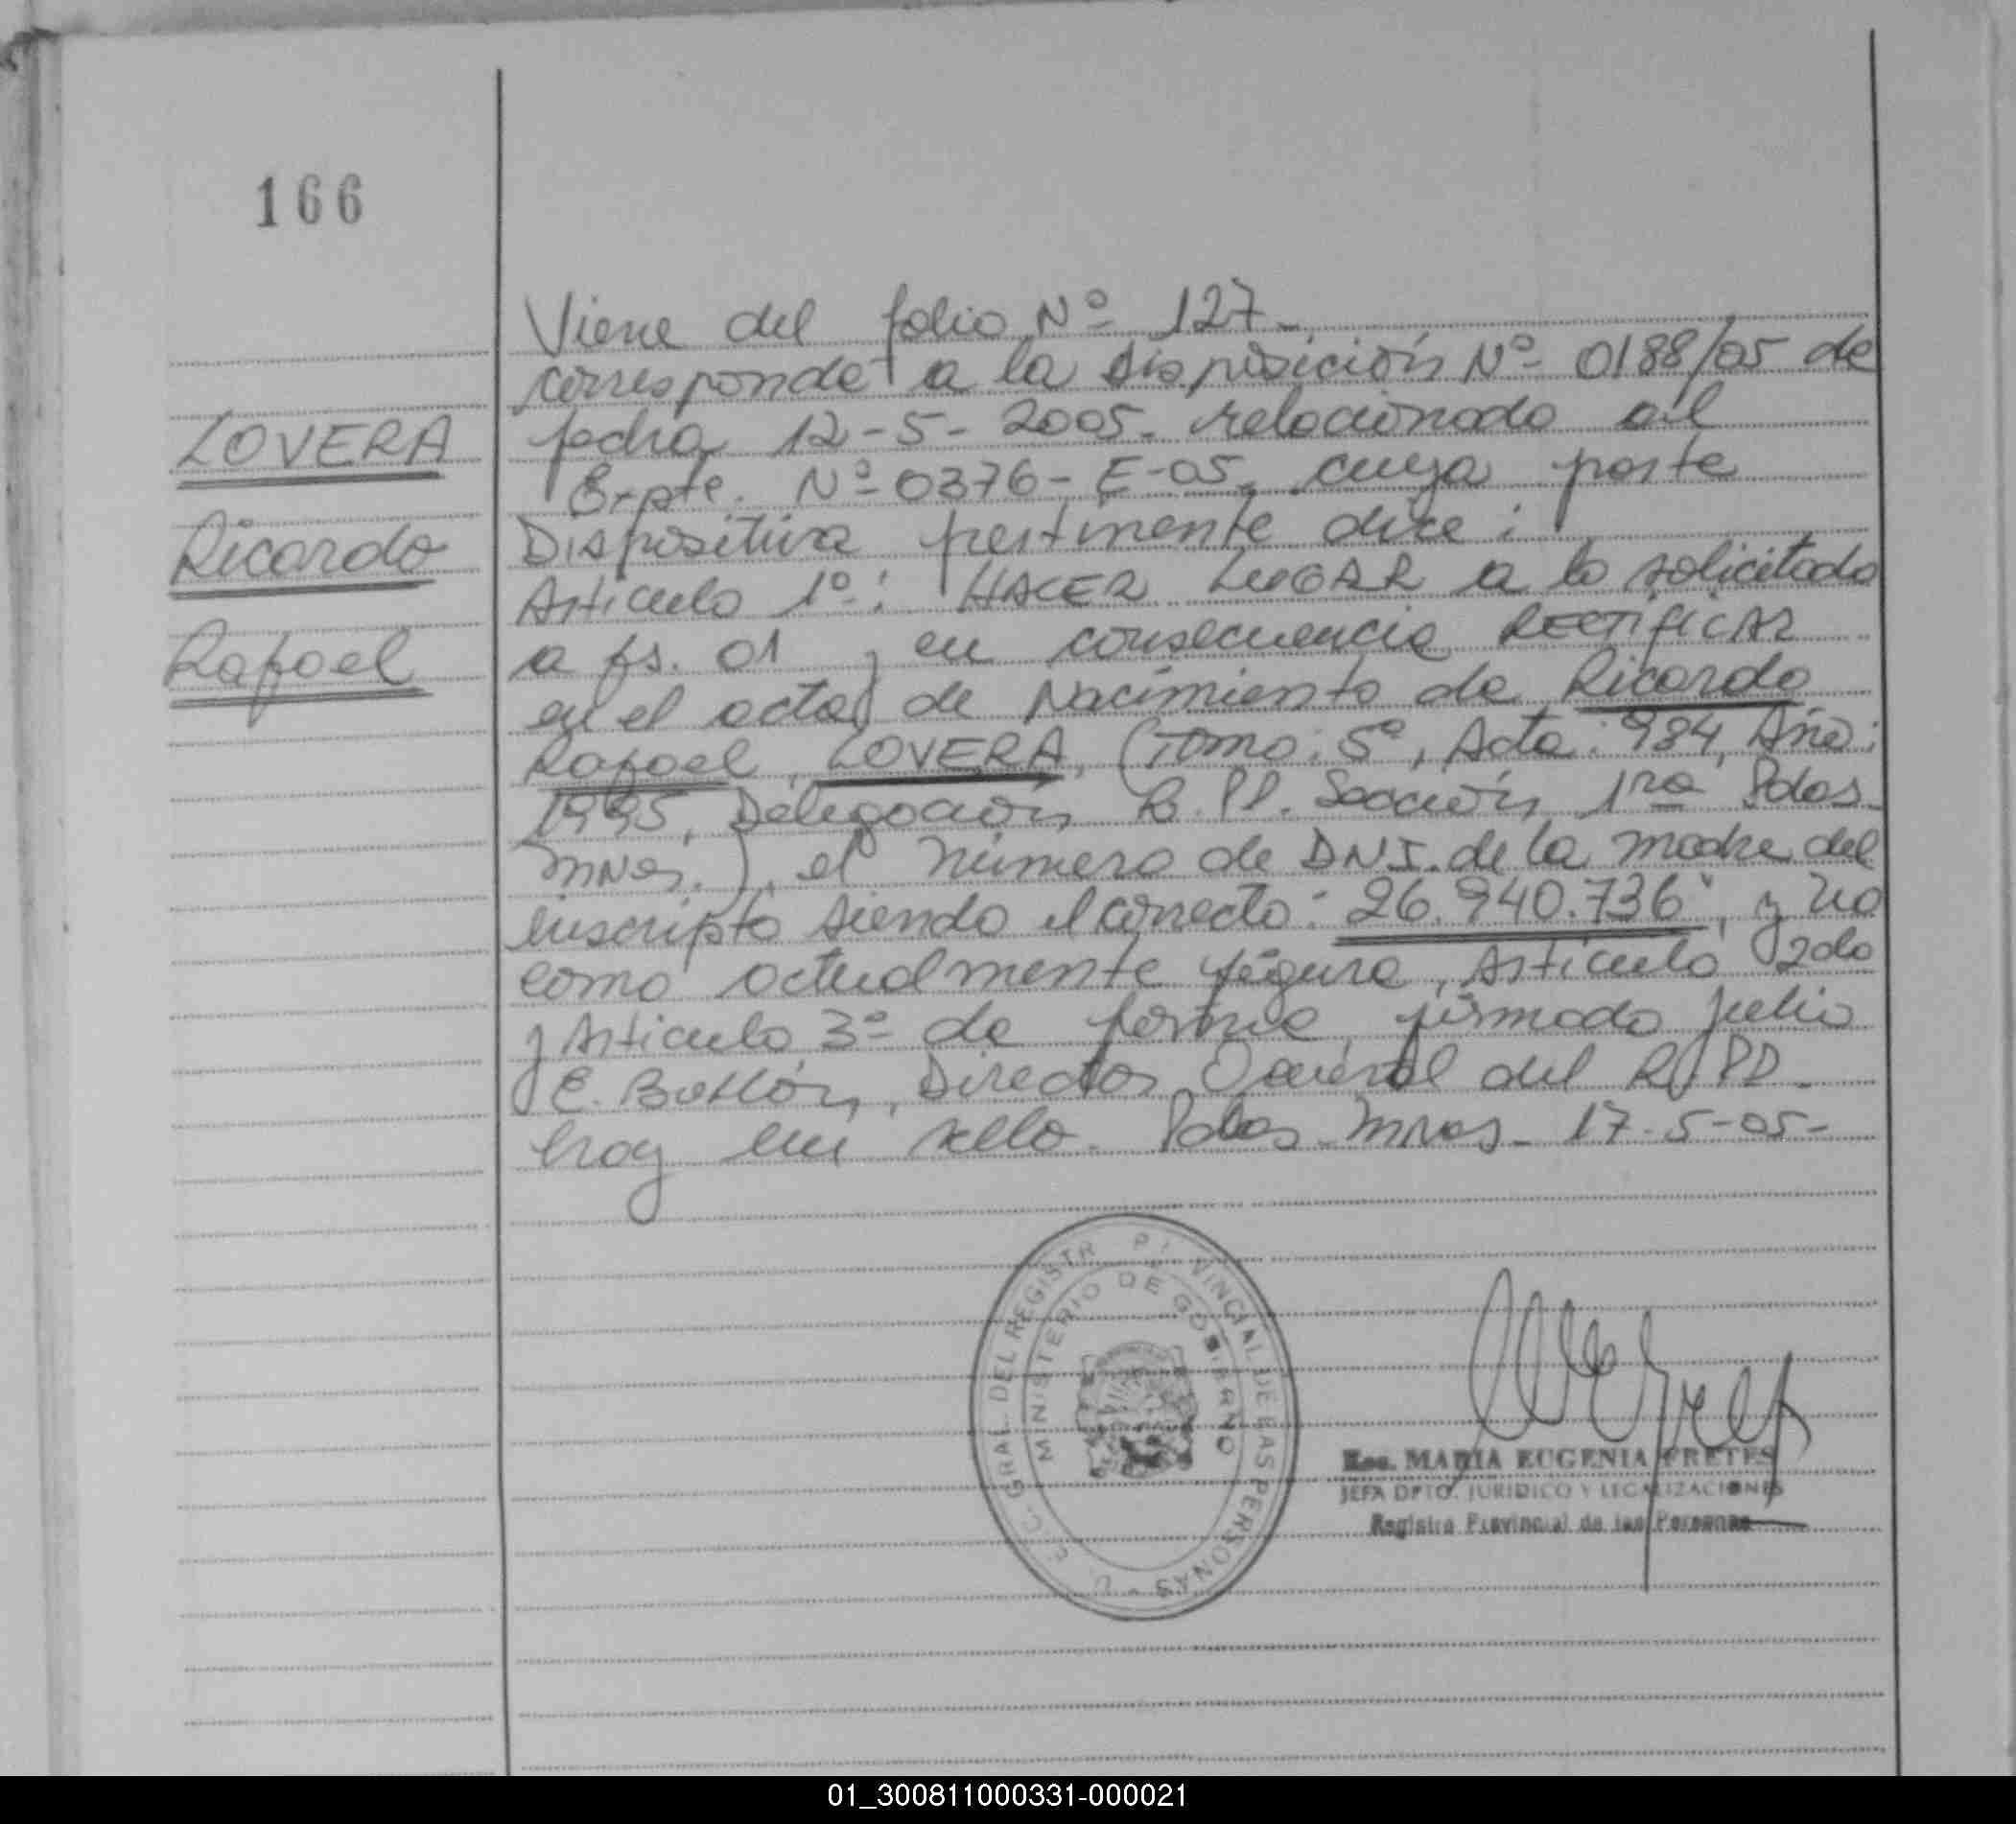 166
LOVERA
Ricardo
Rafael
Viene del folio Nº 127-
corresponde a la disposición Nº 0188/05 de
fecha 12-5-2005- relacionado al
Expte. Nº 0376-E-05, cuya parte
Dispositiva pertinente dice:
Articulo 1º: HACER LUGAR a lo solicitado
a fs. 01 y en consecuencia RECTIFICAR
en el acta de Nacimiento de Ricardo
Rafael, LOVERA, (Tomo: 5º, Acta: 984, Año:
1995, Delegación R.PP. Sección 1ra Pdas-
Mnes.), el número de DNI. de la madre del
inscripto siendo el correcto: "26.940.736", y no
como actualmente figura, Articulo 2do
y Articulo 3º de forma firmado Julio
E. Director General del R.PP.
hay un sello. Pdas-Mnes- 17-5-05-
GRAL. DEL REGISTR PR VINCIAL DE LAS PERSONAS
MINISTERIO DE GOBIERNO
Esc. MARIA EUGENIA FRETES
JEFA DPTO. JURIDICO Y LEGALIZACIONES
Registro Provincial de las Personas
01_300811000331-000021